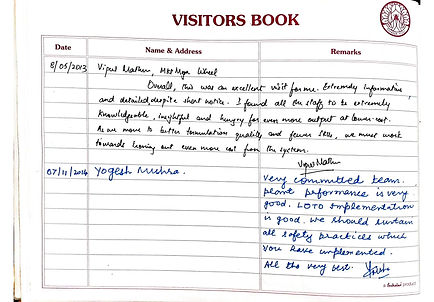 VISITORS BOOK
Date Name & Address Remarks
8/05/2013 Vipul Mathur, Mktg Wheel
Overall, this was an excellent visit for me. Extremely informative
and detailed despite short notice. I found all the staffs to be extremely
knowledgeable, insightful and hungry for even more output at lower cost.
As we move to better formulation quality and fewer SKUs, we must work
towards even more cost from the system.
Vipul Mathur
07/11/2014 Yogesh Mishra.
very committed team.
plant performance is very
good. LOTO Implementation
is good. We should sustain
all safety practices which
you have implemented.
All the very best.
a product